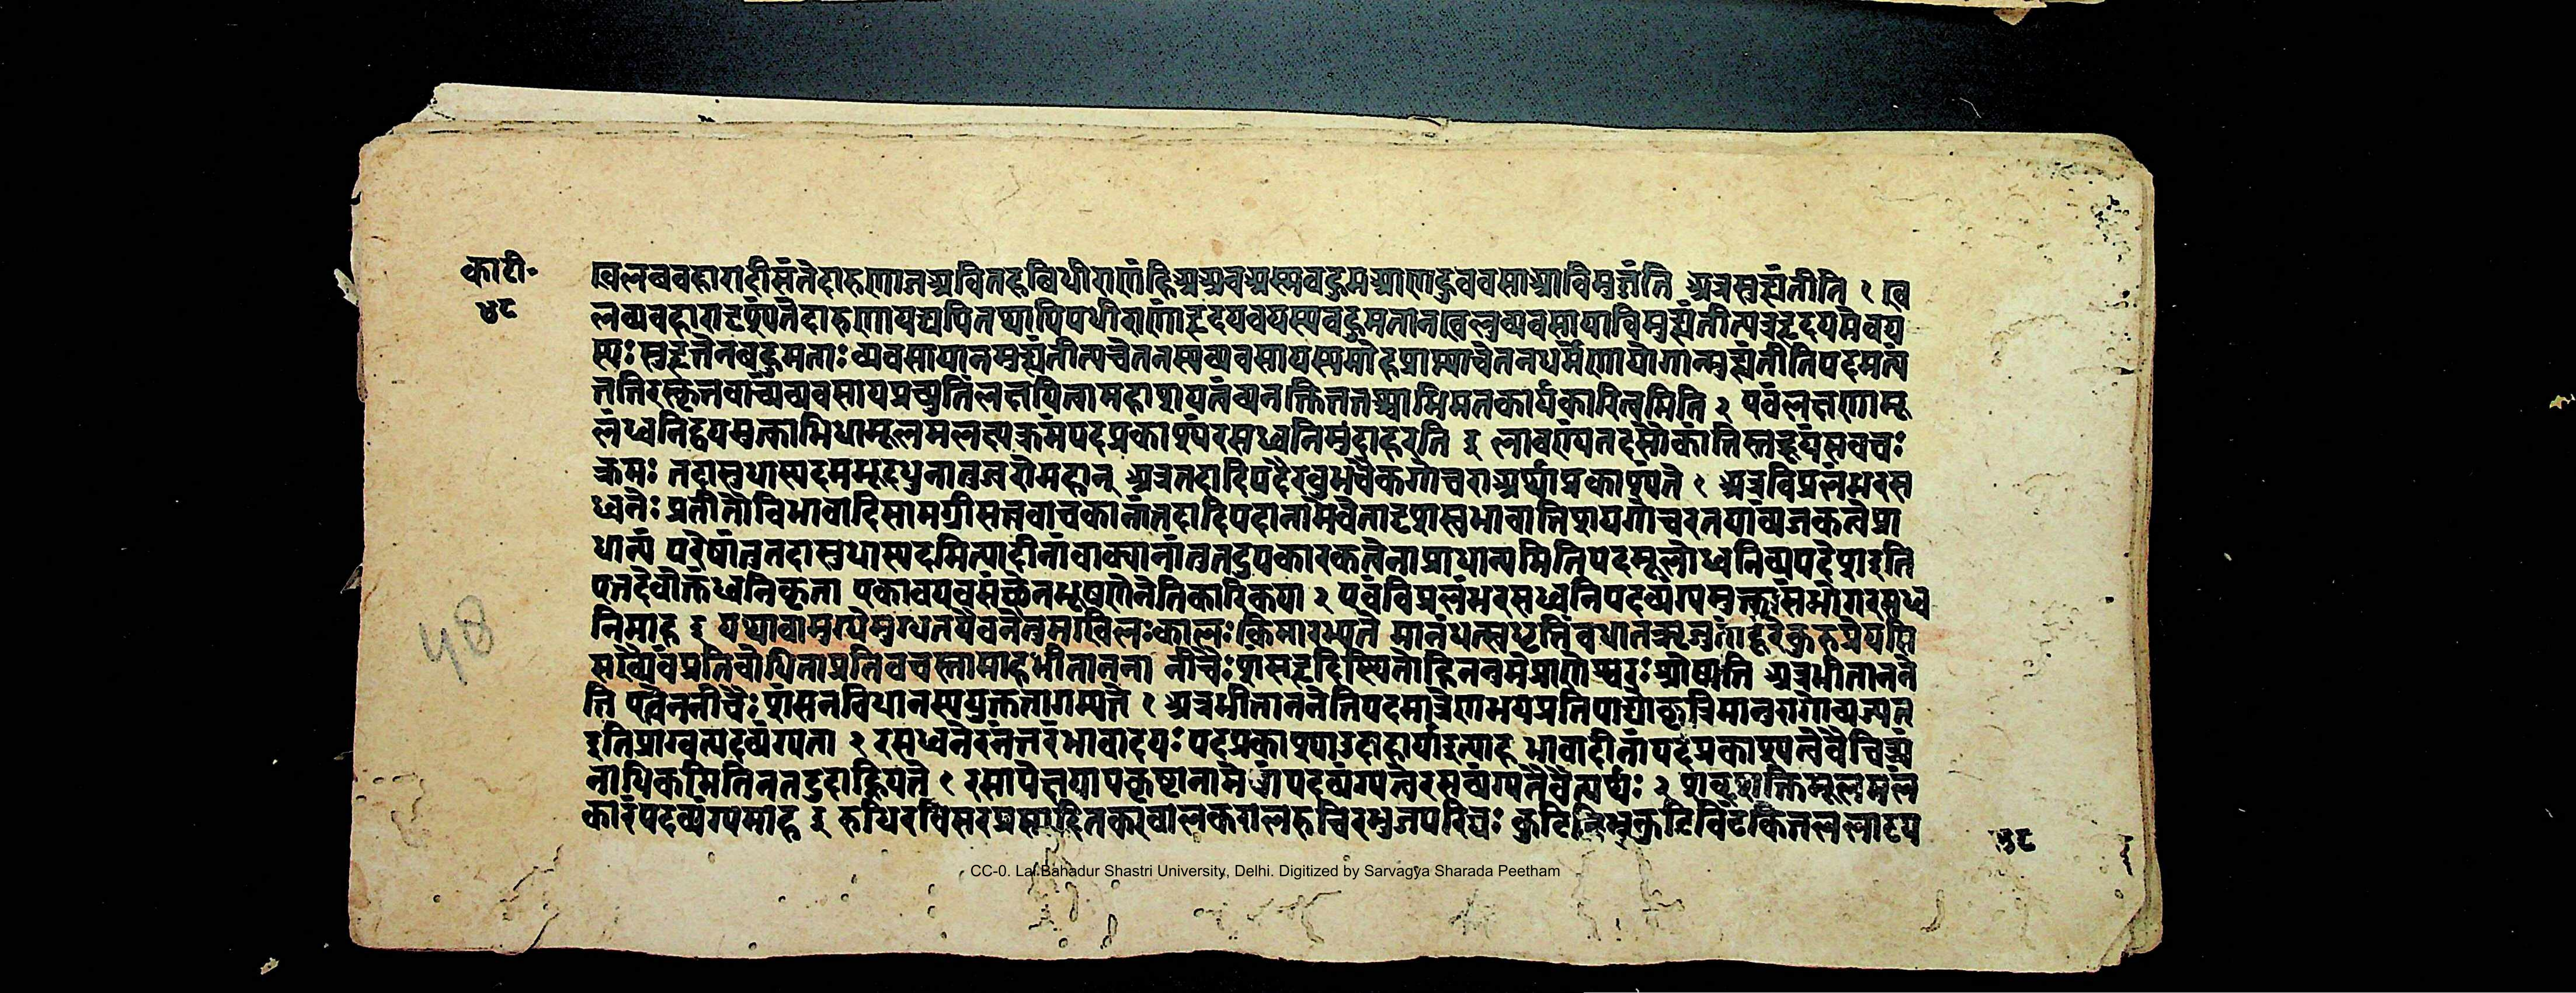 का टी॰
५८
खलववहारादीसंतेदारुणाजअवितहविधीराणंहिअअवअस्सवहुमआणहुववसाआविमुज्जंति अत्रमुह्यंतीति १ ख
लव्यवहारादृश्यंतेदारुणायद्यपितथापिधीराणांहृदयवयस्यवहुमतानखलुव्यवसायाविमुह्यंतीत्यत्रहृदयमेवय
स्यः सुहृत्तेनबहुमताः व्यवसायानमुह्यंतीत्यचेतनस्यव्यवसायस्यमोहप्राप्त्याचेतनधर्मेणायोगान्मुह्यंतीतिपदमत्यं
ततिरस्कृतवाच्यव्यवसायप्रच्युतिंलक्षयित्वामहाशयतंव्यनक्ति मिमतकार्यकारित्वमिति २ एवंलक्षणामू
लंध्वनिद्वयमुक्ताभिधामूलमलक्ष्यक्रमंपदप्रकाश्यंरसध्वनिमुदाहरति ३ लावण्यंतदसौकांतिस्तद्रूपंसवचः
क्रमः तदासुधास्पदमभूदधुनातुज्वरोमहान् अत्रतदादिपदैरनुभवैकगोचराअर्थाप्रकाश्यंते १ अत्रविप्रलंभरस
ध्वनेः प्रतीतौविभावादिसामग्रीसत्त्ववाचकानांतदादिपदानामेवैतादृशस्वभावातिशयगोचरतयाव्यंजकत्वेप्रा
धान्यं परेषांतुतदासुधास्पदमित्यादीनांवाक्यानांतुतदुपकारकत्वेनाप्राधान्यमितिपदमूलोध्वनिव्यपदेशइति
एतदेवोक्तंध्वनिकृता एकावयवसंस्थेनभूषणेनेतिकारिकया २ एवंविप्रलंभरसध्वनिपदव्यंग्यमुक्तासंभोगरसध्व
निमाह ३ यथावामुग्धेमुग्धतयैवनेतुमखिलः कालः किमारभ्यते मानंधत्स्वधृतिंवधानऋजुतांदूरेकुरुप्रेयसि
सख्यैवंप्रतिबोधिताप्रतिवचस्तामाहभीतानना नीचैः शंसहृदिस्थितोहिननुमेप्राणेश्वरः श्रोष्यति अत्रभीताननने
ति एतेननीचैः शंसनविधानस्ययुक्ततागम्यते १ अत्रभीताननेतिपदमात्रेणभयप्रतिपाद्याकृत्रिमानुरागोव्यज्यत
इतिप्राग्वत्पदव्यंग्यता २ रसध्वनेरनंतरंभावादयः पदप्रकाश्याउदाहार्याइत्याह भावादीनांपदप्रकाश्यत्वेवैचित्र्यं
नाधिकमितिनतदुदाह्रियते १ रसापेक्षयापकृष्टानामेषांपदव्यंग्यत्वेरसव्यंग्यतेवेत्यर्थः २ शब्दशक्तिमूलमलं
कारंपदव्यंग्यमाह ३ रुधिरविसरप्रसाधितकरवालकरालरुचिरभुजपरिघः विटंकितललाटप
५८
48
CC-0. Lal Bahadur Shastri University, Delhi. Digitized by Sarvagya Sharada Peetham